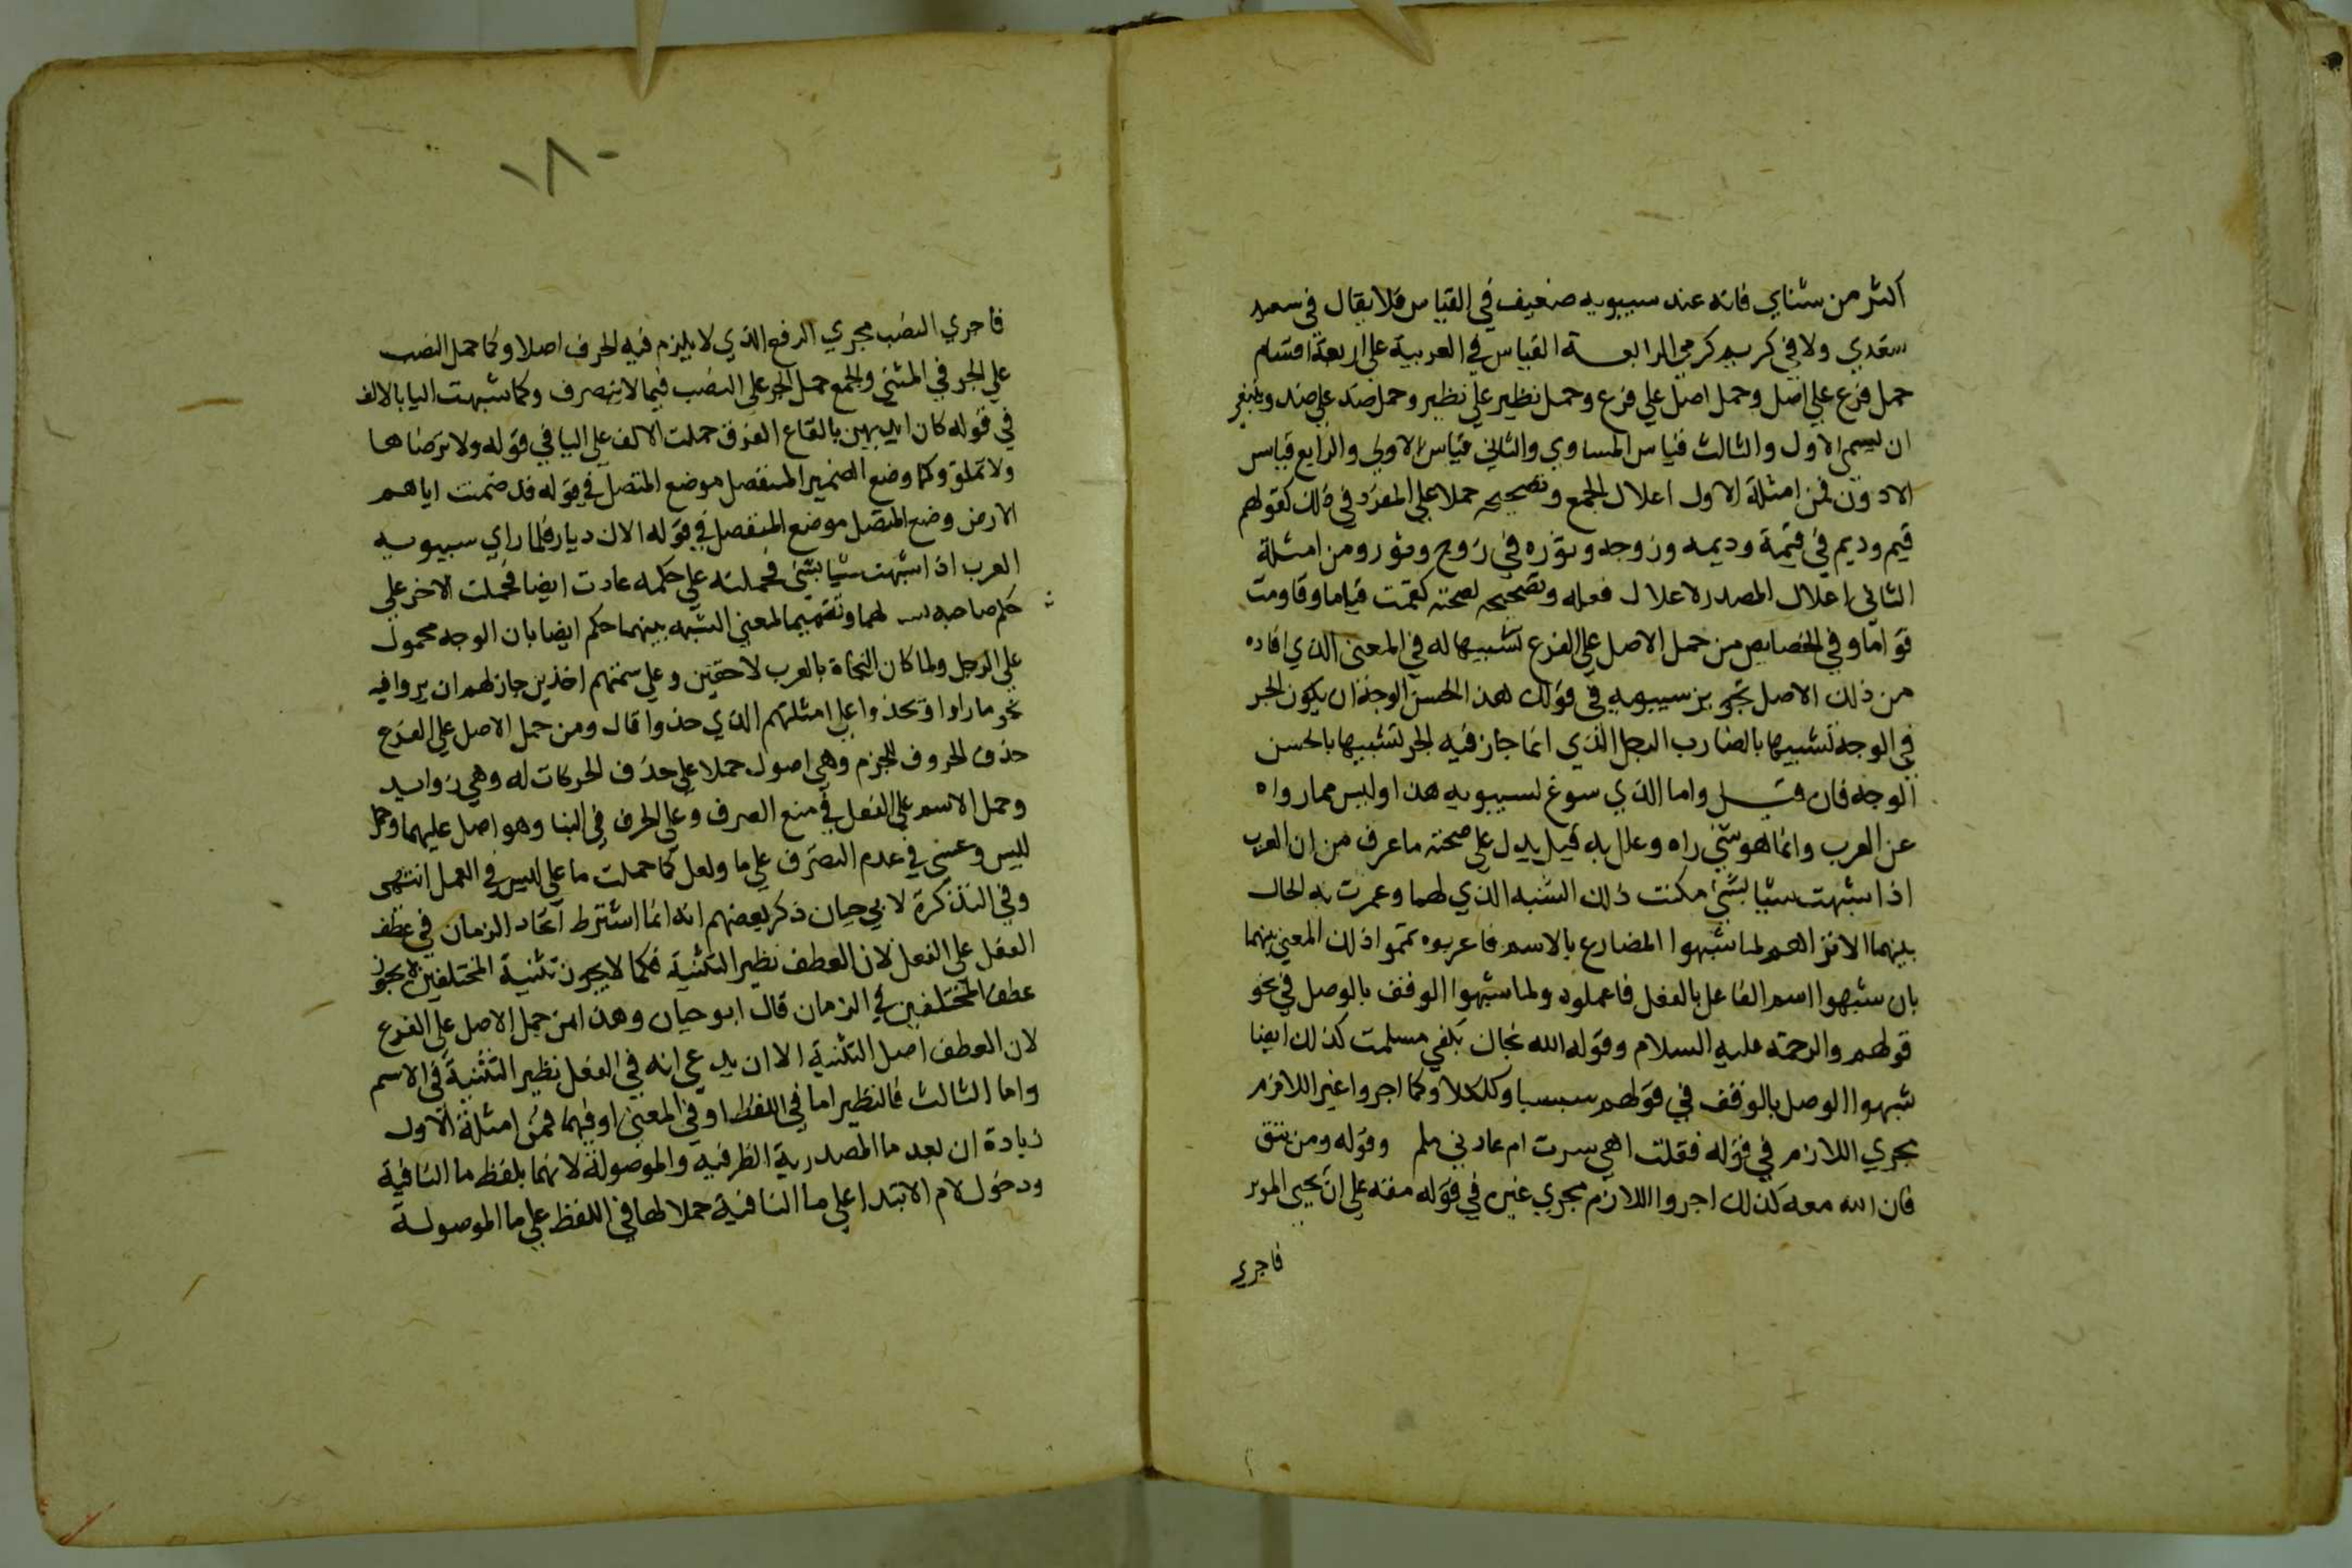 اكثر من شناي فانه عند سيبويه ضعيف في القياس فلا يقال في سعيد
سعدي ولا في كريم كرمي الرابعة القياس في العربية على اربعة اقسام
حمل فرع على اصل وحمل اصل على فرع وحمل نظير على نظير وحمل ضد على ضد وينبغي
ان يسمى الاول والثالث قياس المساوي والثاني قياس الاولى والرابع قياس
الادون فمن امثلة الاول اعلال الجمع وتصحيحه حملا على المفرد في ذلك كقولهم
قيم وديم في قيمة وديمه وزوجه وثوره في زوج وثور ومن امثلة
الثاني اعلال المصدر لاعلال فعله وتصحيحه لصحته كقمت قياما وقاومت
قواما وفي الخصايص من حمل الاصل على الفرع تشبيها له في المعنى الذي افاده
من ذلك الاصل تجويز سيبويه في قولك هذا الحسن الوجه ان يكون الجر
في الوجه تشبيها بالضارب الرجل الذي انما جاز فيه الجر تشبيها بالحسن
الوجه فان قيل وما الذي سوغ لسيبويه هذا وليس مما رواه
عن العرب وانما هو شي راه وعلل به قيل يدل على صحته ما عرف من ان العرب
اذا شبهت شيا بشي مكنت ذلك الشبه الذي لهما وعمرت به الحال
بينهما الا تراهم لما شبهوا المضارع بالاسم فاعربوه تمموا ذلك المعنى بينهما
بان شبهوا اسم الفاعل بالفعل فاعملوه ولما شبهوا الوقف بالوصل في نحو
قولهم والرحمة عليه السلام وقوله الله نجاك بكفي مسلمت كذلك ايضا
شبهوا الوصل بالوقف في قولهم سبسبا وكلكلا وكما اجروا غير اللازم
مجرى اللازم في قوله فقلت اهي سرت ام عادني حلم وقوله ومن يتق
فان الله معه كذلك اجروا اللازم مجري غيره في قوله على ان يحيى الموتى
فاجري
١٨٠
فاجري النصب مجري الرفع الذي لا يلزم فيه الحرف اصلا وكما حمل النصب
على الجر في المثنى والجمع حمل الجر على النصب فيما لا ينصرف وكما شبهت اليا بالالف
في قوله كان ايديهن بالقاع القرق حملت الالف على اليا في قوله ولا ترضاها
ولا تملق وكما وضع الضمير المنفصل موضع المتصل في قوله قد ضمنت اياهم
الارض وضع المتصل موضع المنفصل في قوله الاك ديار فلما راي سيبويه
العرب اذا شبهت شيا بشي فحملته على حكمه عادت ايضا فحملت الاخر على
حكم صاحبه لهما وتتميما لمعنى الشبه بينهما حكم ايضا بان الوجه محمول
على الرجل ولما كان النحاة بالعرب لاحقين وعلى سمتهم اخذين جاز لهم ان يروا فيه
نحو ما راوا ويحذوا على امثلتهم الذي حذوا قال ومن حمل الاصل على الفرع
حذف الحروف للجزم وهي اصول حملا على حذف الحركات له وهي زوايد
وحمل الاسم على الفعل في منع الصرف وعلى الحرف في البنا وهو اصل عليهما وحمل
ليس وعسى في عدم التصرف على ما ولعل كما حملت ما على ليس في العمل انتهى
وفي التذكرة لابي حيان ذكر بعضهم انه انما اشترط اتحاد الزمان في عطف
الفعل على الفعل لان العطف نظير التثنية فكما لا يجوز تثنية المختلفين لا يجوز
عطف المختلفين في الزمان قال ابو حيان وهذا من حمل الاصل على الفرع
لان العطف اصل التثنية الا ان يدعى انه في الفعل نظير التثنية في الاسم
واما الثالث فالنظير اما في اللفظ او في المعنى او فيهما فمن امثلة الاول
زيادة ان بعد ما المصدرية الظرفية والموصولة لانهما بلفظ ما النافية
ودخول لام الابتدا على ما النافية حملا لها في اللفظ على ما الموصولة